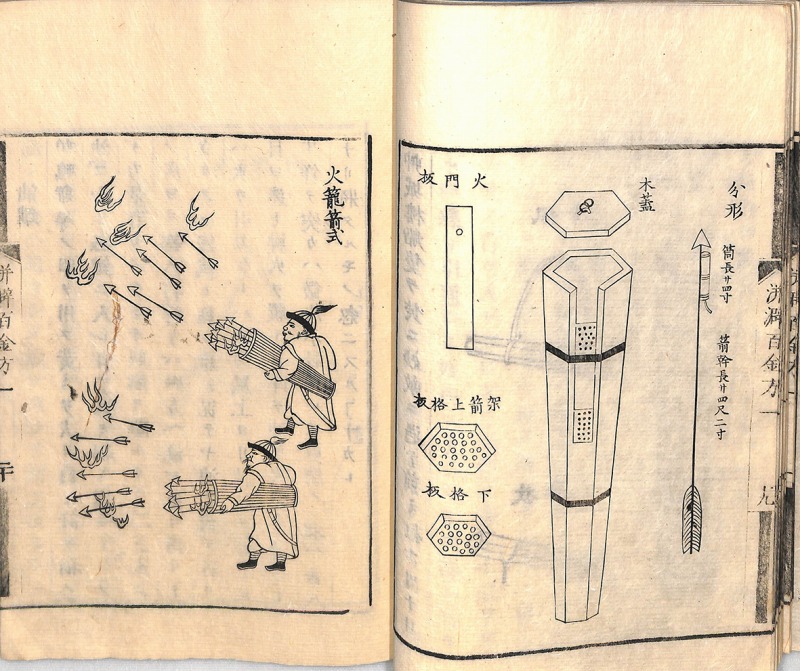 洴澼百金方一
九
分形
筒長サ四寸
箭幹長サ四尺二寸
木蓋
火門板
架箭上格板
下格板
火籠箭式
洴澼百金方一